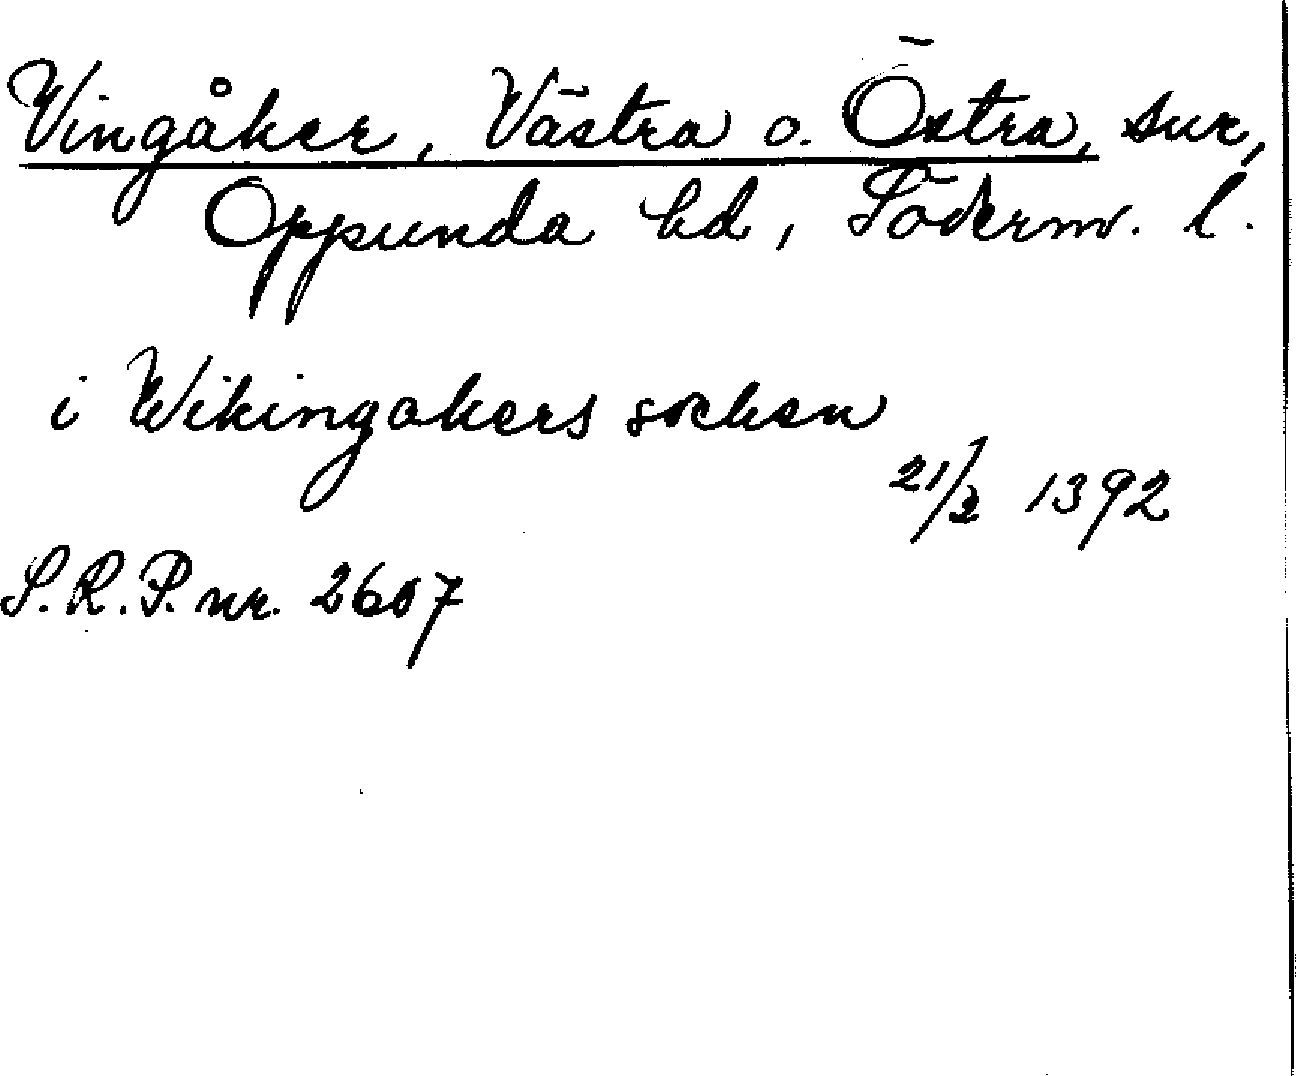 Vingåker, Västra o. Östra, snr,
Oppunda hd, Söderm. l.
i Wikingakers socken
21/2 1392
S.R.P. nr. 2607